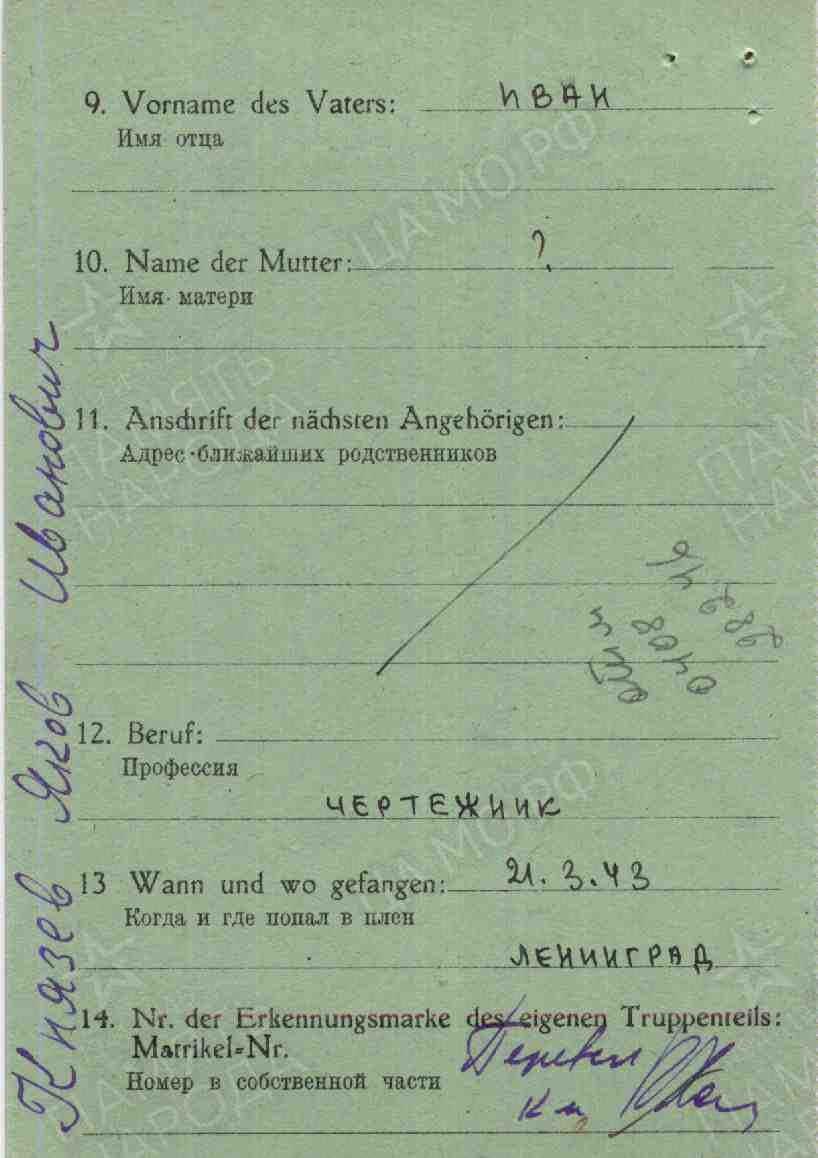 9. Vorname des Vaters: ИВАН
Имя отца
10. Name der Mutter: ?
Имя матери
11. Anschrift der nächsten Angehörigen:
Адрес ближайших родственников
12. Beruf:
Профессия
ЧЕРТЕЖНИК
13 Wann und wo gefangen: 21.3.43
Когда и где попал в плен
ЛЕНИНГРАД
14. Nr. der Erkennungsmarke des eigenen Truppenteils:
Matrikel=Nr.
Номер в собственной части
Перевел
Князев Яков Иванович
ЦАМО РФ
ПАМЯТЬ
НАРОДА
ЦАМО РФ